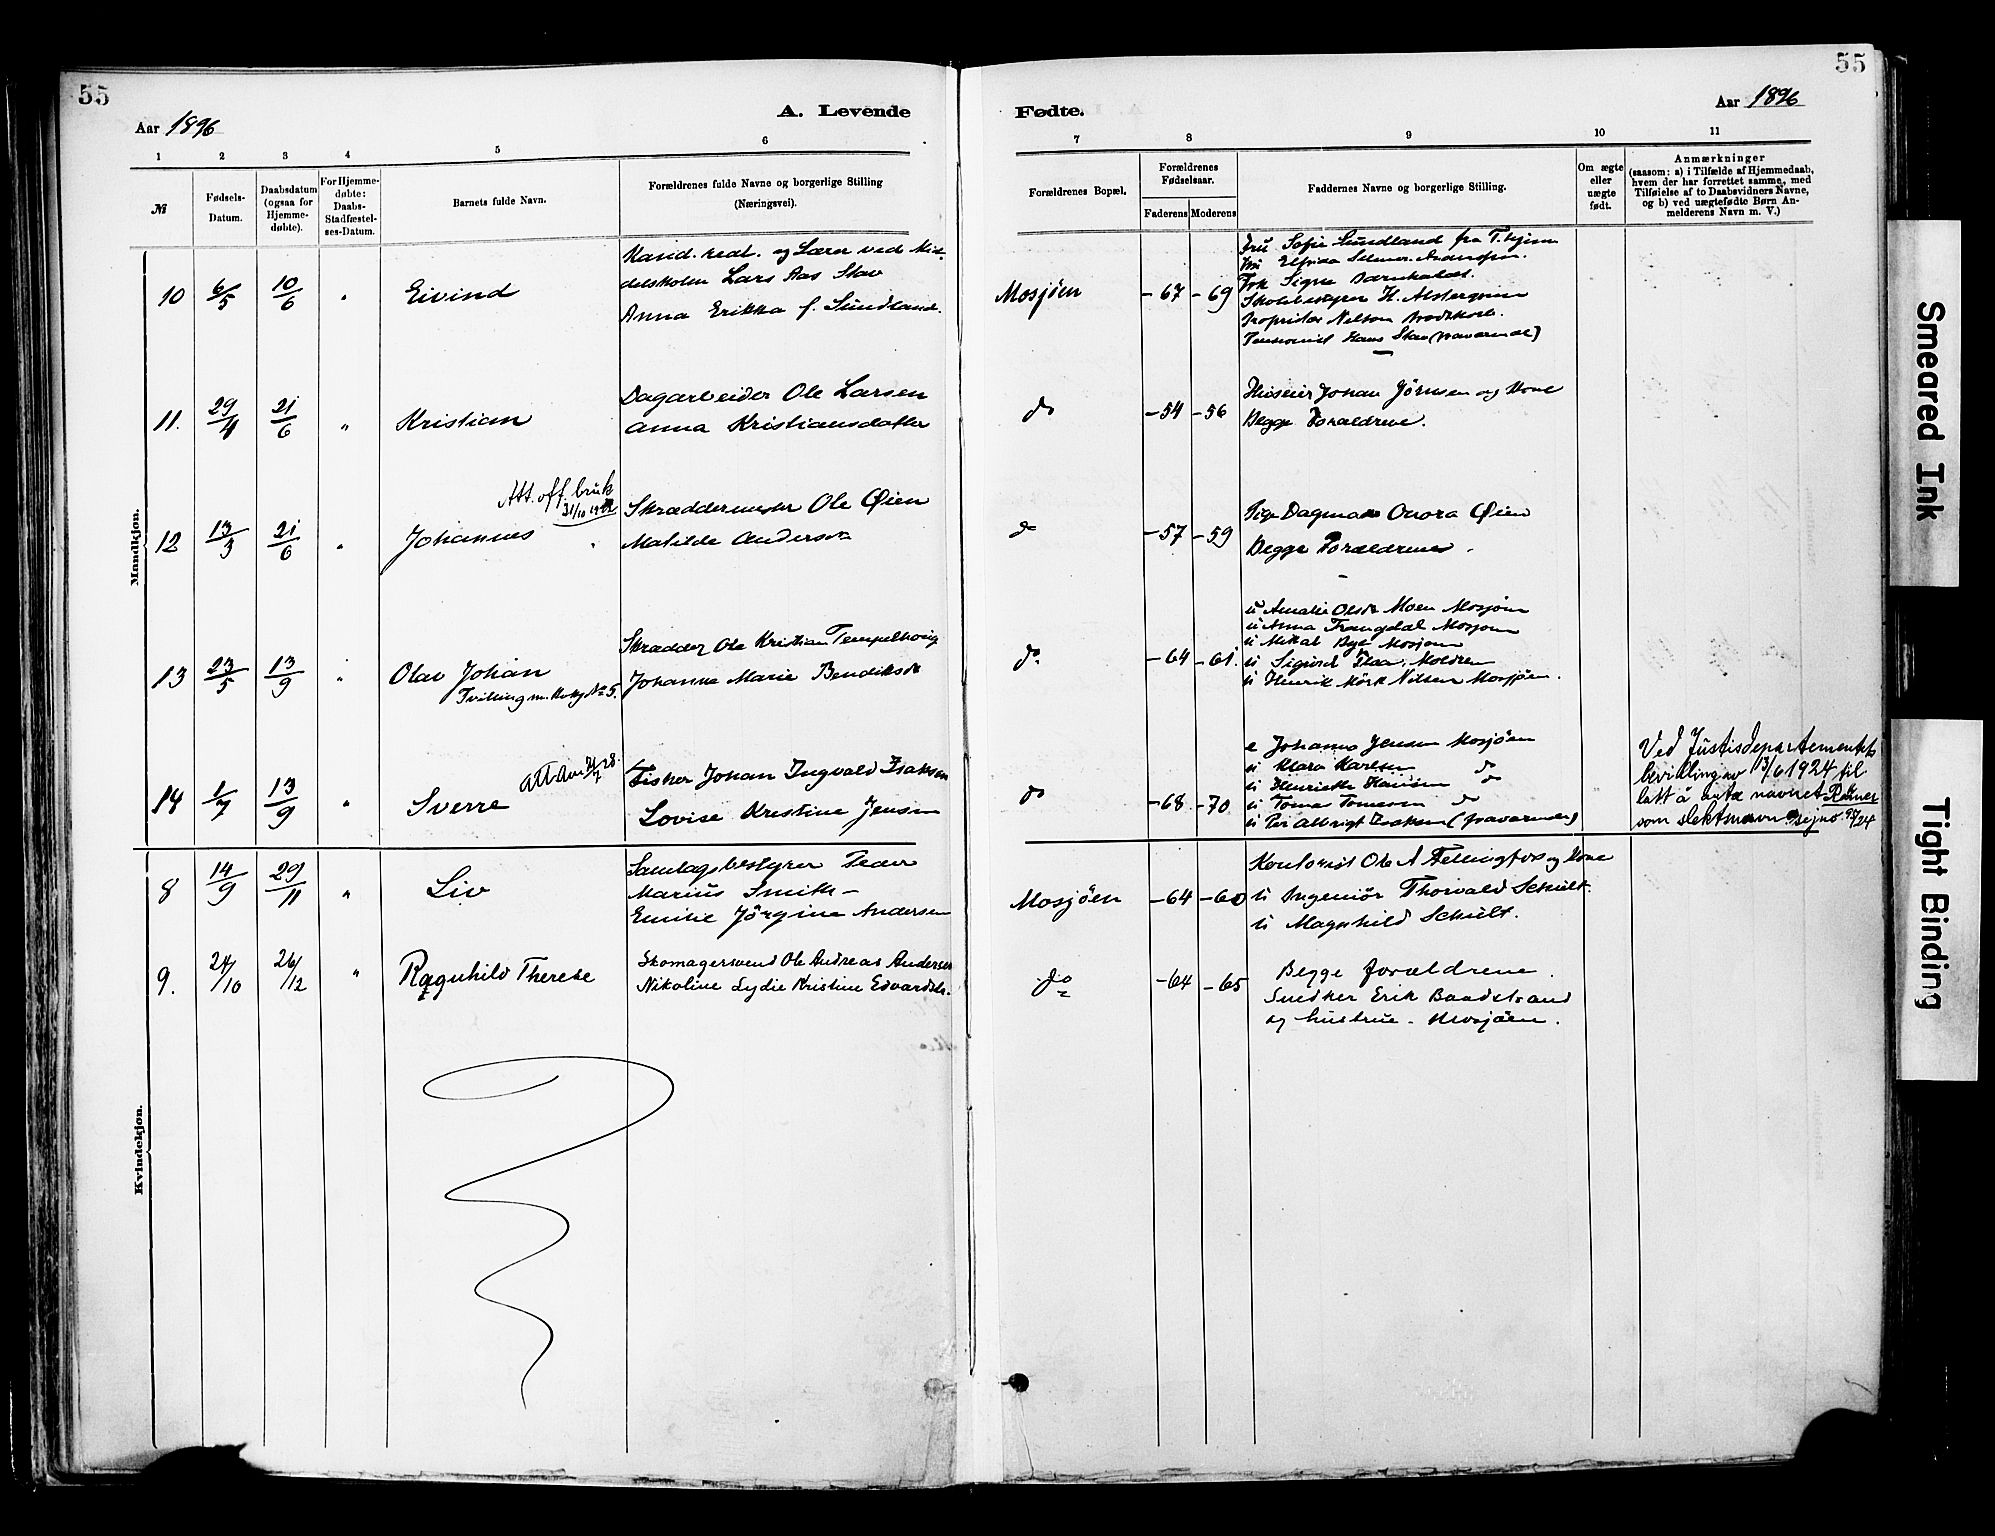 55
Aar 1896
A. Levende
1 2 3 4 5 6
№
Fødsels-Datum.
Daabsdatum (ogsaa for Hjemme-døbte).
For Hjemme-døbte: Daabs-Stadfæstel-ses-Datum.
Barnets fulde Navn.
Forældrenes fulde Navne og borgerlige Stilling
(Næringsvei).
Mandkjøn.
10 6/5 10/6 " Eivind
Kand. real. og Lærer ved Mid-
delskolen Lars Aas Stav
Anna Erikka f. Sundland.
11. 29/4 21/6 " Kristian
Dagarbeider Ole Larsen
Anna Kristiansdatter
Att. off. bruk
12 13/3 21/6 " Johannes
Skræddermester Ole Øien
Matilde Andersen
13 23/5 13/9 " Olav Johan
Tvilling m. Kvkj. № 5.
Skrædder Ole Kristian Tempelhoug
Johanne Marie Bendiksdr
14 1/7 13/9 " Sverre
Fisker Johan Ingvald Isaksen
Lovise Kristine Jensen
Kvindekjøn.
8 14/9 29/11 " Liv
Samlagsbestyrer Peder
Marius Smith-
Emilie Jørgine Andersen
9. 24/10 26/12 " Ragnhild Therese
Skomagersvend Ole Andreas Andersen
Nikoline Lydie Kristine Edvardsdr.
55
Aar 1896
Fødte.
7 8 9 10 11
Forældrenes Bopæl.
Forældrenes Fødselsaar.
Faderens Moderens
Faddernes Navne og borgerlige Stilling.
Om ægte eller uægte født.
Anmærkninger
(saasom: a) i Tilfælde af Hjemmedaab,
hvem der har forrettet samme, med
Tilføielse af to Daabsvidners Navne,
og b) ved uægtefødte Børn An-
melderens Navn m. V.)
Mosjøen -67 -69
Fru Sofie Sundland fra T.hjem
Frk Signe
Skolebestyrer H. Alstergrim
Proprietær Nilsen
Hans Stav (fraværende)
do -54 -56
Huseier Johan Jörnsen og Kone
Begge Forældrene.
do -57 -59
Pige Dagmar Onora Øien
Begge Forældrene.
do -64 -61.
u Amalie Olsdr Moen Mosjøen
u Anna Trangdal Mosjøen
u Mikal Bye Mosjøen
u Sigurd
u Henrik Mörk Nilsen Mosjøen.
do -68 -70
e Johanna Jensen Mosjøen
u Klara Karlsen do
u Henriette Hansen do
u Tomesen do
u Per Albrigt Isaksen (fraværende)
Ved Justisdepartementets
bevilling av 13/6 1924 til
latt å anta navnet
som slektsnavn
Mosjøen -64 -60
Kontorist Ole A Fellingfos og Kone
u Ingeniör Thorvald Schult.
u Magnhild Schult.
do -64 -65
Begge forældrene.
Snedker Erik Baadstrand
og hustrue - Mosjøen.
Smeared Ink
Tight Binding